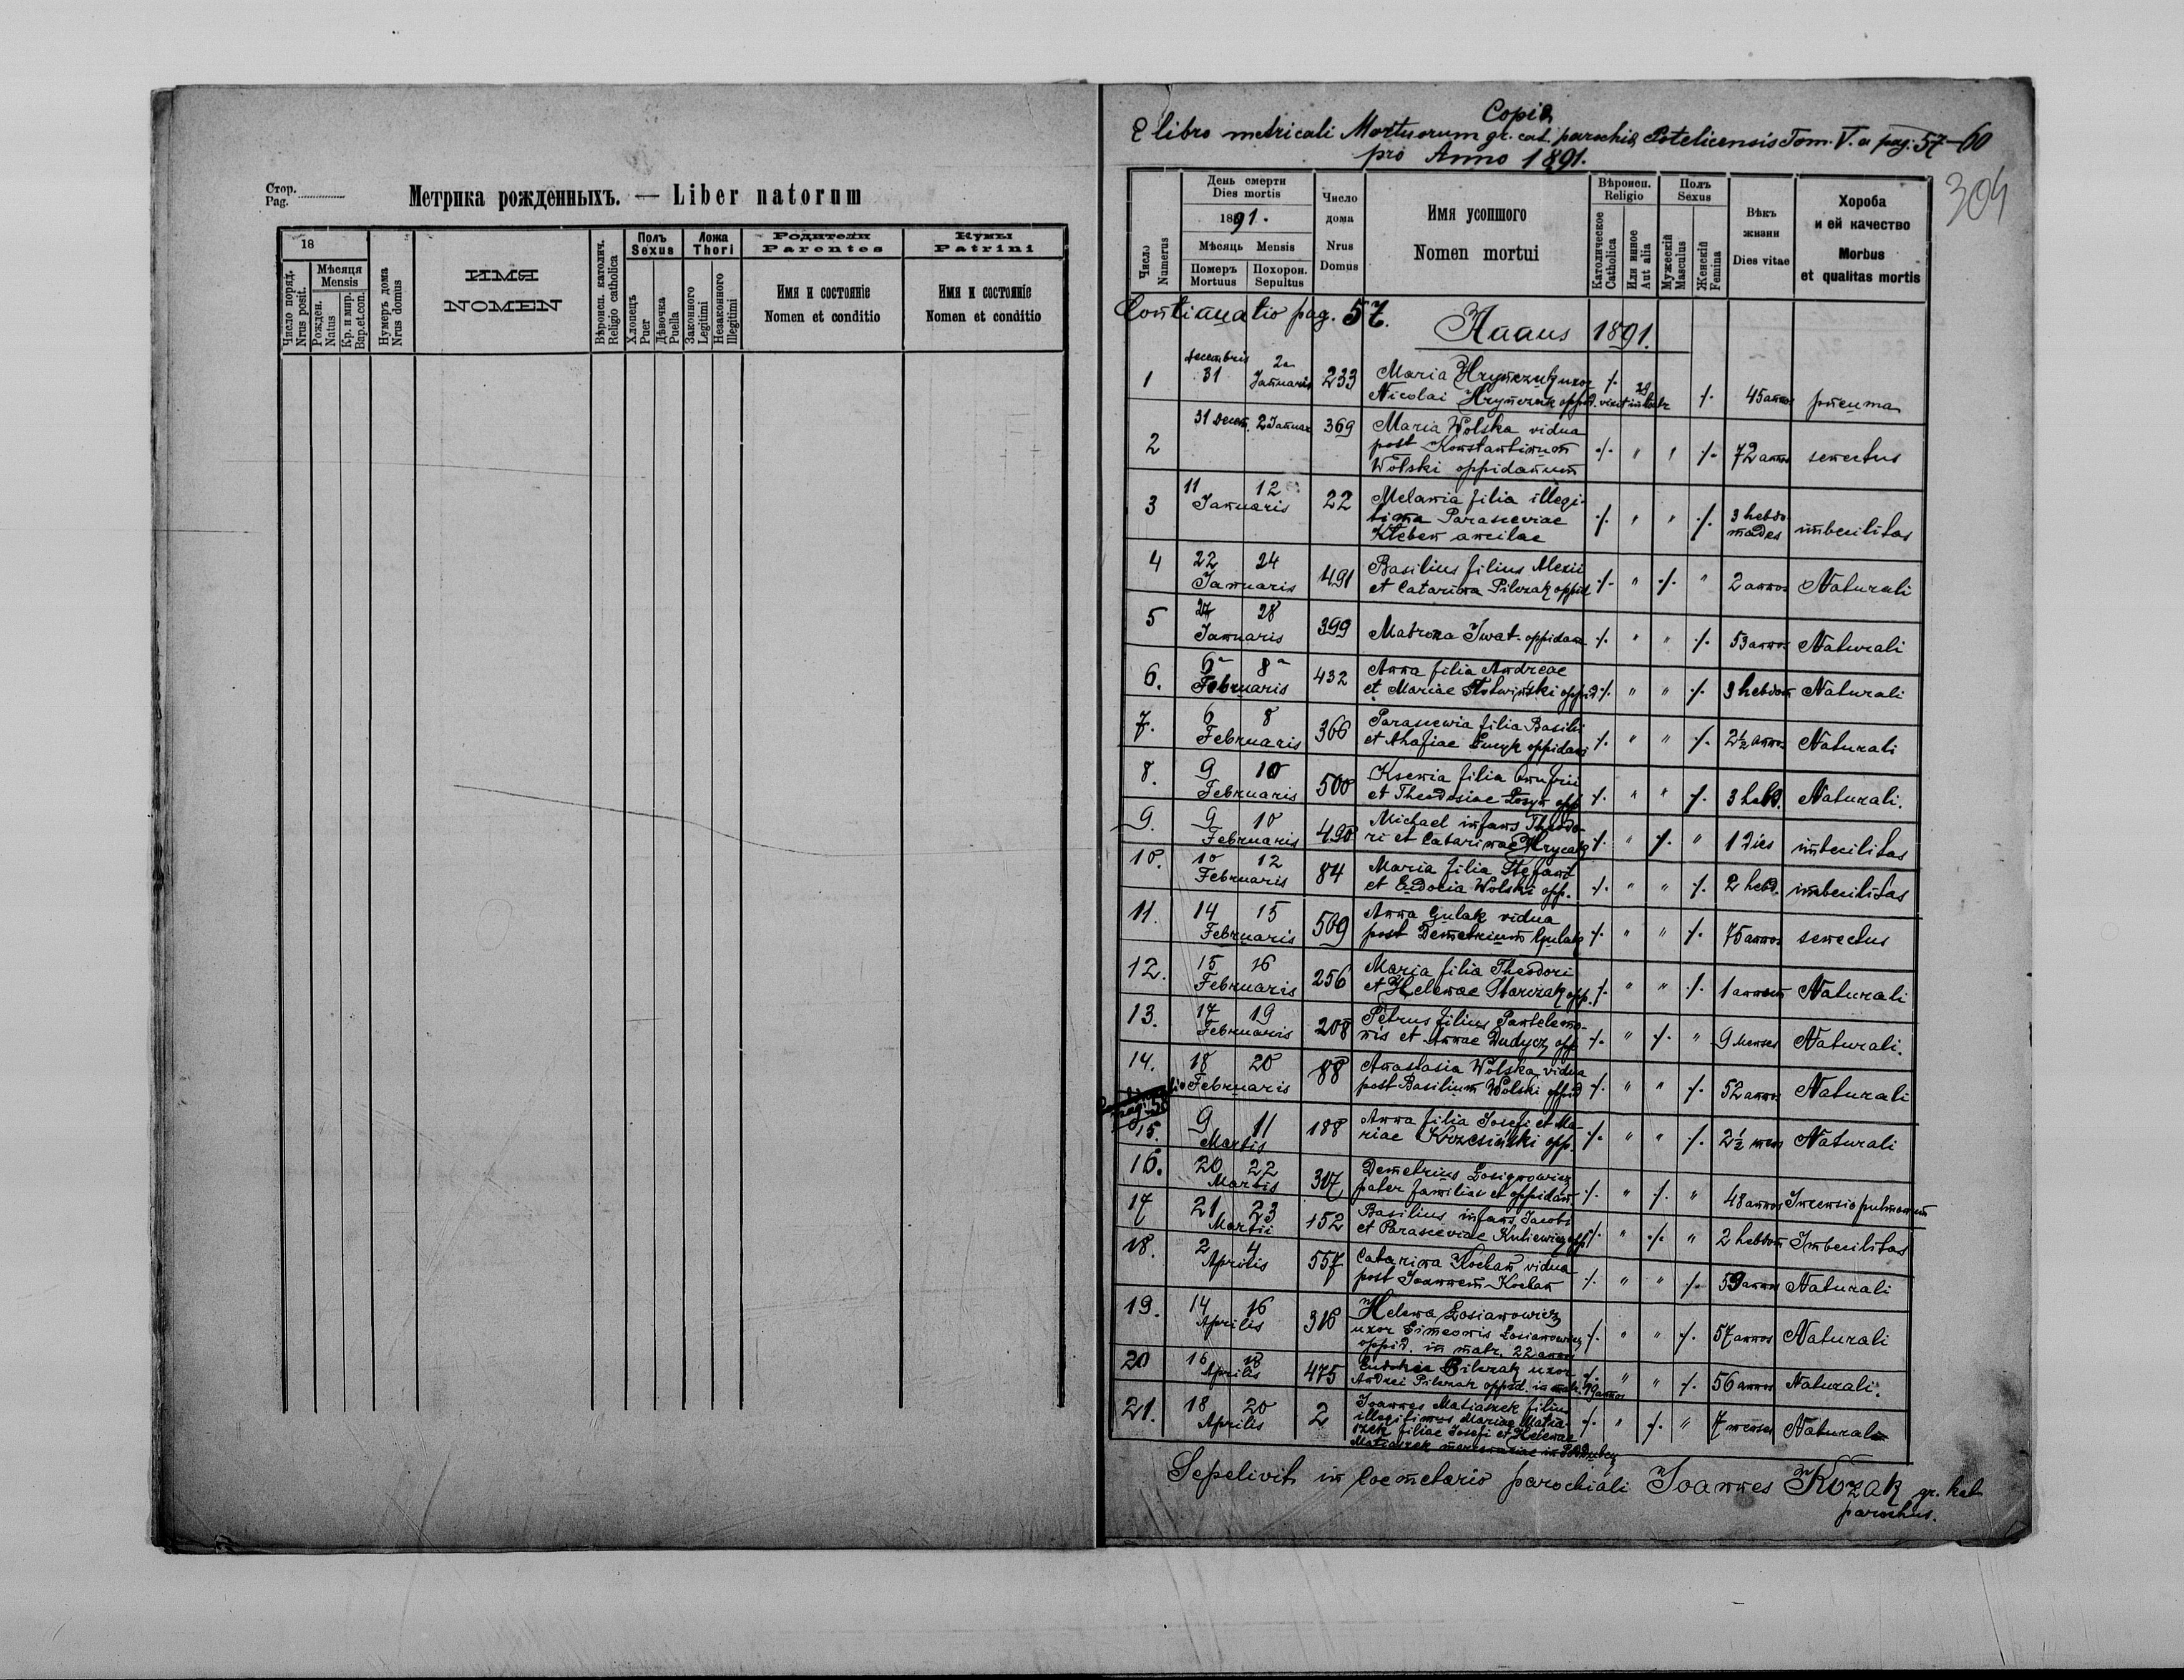 Стор.
Pag.
Метрика рожденныхъ. — Liber natorum
18
Число поряд.
Nrus posit.
Мѣсяця
Mensis
Рожден.
Natus
Кр. и мир.
Bap.et.con.
Нумеръ дома
Nrus domus
ИМЯ
NOMEN
Вѣроисп. католич.
Religio catholica
Полъ
Sexus
Хлопецъ
Puer
Дѣвочка
Puella
Ложа
Thori
Законного
Legitimi
Незаконного
Illegitimi
Родители
Parentes
Имя и состояніе
Nomen et conditio
Кумы
Patrini
Имя и состояніе
Nomen et conditio
Copia
E libro metricali Mortuorum gr. cat. parochiæ Potelicensis Tom. V. a pag. 57–60
pro Anno 1891.
304
Число
Numerus
День смерти
Dies mortis
1891.
Мѣсяць Mensis
Померъ
Mortuus
Похорон.
Sepultus
Число
дома
Nrus
Domus
Имя усопшого
Nomen mortui
Вѣроисп.
Religio
Католическое
Catholica
Или инное
Aut alia
Полъ
Sexus
Мужескій
Masculus
Женскій
Femina
Вѣкъ
жизни
Dies vitae
Хороба
и ей качество
Morbus
et qualitas mortis
Continuatio pag. 57.
1891.
1 decembris 31 2a Januaris 233 Maria Hrynczuk uxor
Nicolai Hrynczuk oppid. vixit in matr. ·/· ·/· 45 annos pneuma
2 31 decem. 2 Januar 369 Maria Wolska vidua
post Konstantinum
Wolski oppidanum ·/· " " ·/· 72 annos senectus
3 11 12 Januaris 22 Melania filia illegi-
tima Parasceviae
Kleben ancilae ·/· " " ·/· 3 hebdo-
mades imbecilitas
4 22 24 Januaris 491 Basilius filius Alexii
et Catarina Pilczak oppid ·/· " ·/· " 2 annos Naturali
5 27 28 Januaris 399 Matrona Iwat. oppidana ·/· " " ·/· 53 annos Naturali
6. 6a 8a Februaris 432 Anna filia Andreae
et Mariae Slotwiński oppid ·/· " " ·/· 3 hebdom Naturali
7. 6 8 Februaris 366 Parascewia filia Basilii
et Ahafiae Lucyk oppidani ·/· " " ·/· 2½ annos Naturali
8. 9 10 Februaris 500 Ksenia filia Onufrii
et Theodosiae opp ·/· " " ·/· 3 hebd. Naturali.
9. 9 10 Februaris 490 Michael infans Theodo-
ri et Catarinae Hrycak ·/· " ·/· " 1 dies imbecilitas
10. 10 12 Februaris 84 Maria filia Stefani
et Eudocia Wolski opp. ·/· " " ·/· 2 hebd. imbecilitas
11. 14 15 Februaris 509 Anna Gulak vidua
post Demetrium Gulak ·/· " " ·/· 75 annos senectus
12. 15 16 Februaris 256 Maria filia Theodori
et Helenae Starczak opp. ·/· " " ·/· 1 annum Naturali
13. 17 19 Februaris 208 Petrus filius Pantelemo-
nis et Annae Dudycz opp ·/· " ·/· " 9 menses Naturali.
14. 18 20 Februaris 88 Anastasia Wolska vidua
post Basilium Wolski oppid ·/· " " ·/· 52 annos Naturali
pag. 58
15. 9 11 Martis 188 Anna filia Josefi et Ma-
riae Krzesiński opp. ·/· " " ·/· 2½ mens Naturali
16. 20 22 Martis 317 Demetrius Łosianowicz
pater familiae et oppidan. ·/· " ·/· " 48 annos Incensio pulmonum
17 21 23 Martii 152 Basilius infans Jacobi
et Parasceviae Kuliewicz opp. ·/· " ·/· " 2 hebdom Imbecilitas
18. 2 4 Aprilis 557 Catarina Kochan vidua
post Joannem Kochan ·/· " " ·/· 59 annos Naturali
19. 14 16 Aprilis 316 Helena Łosianowicz
uxor Simeonis Łosianowicz
oppid. in matr. 22 annos ·/· " " ·/· 57 annos Naturali
20 16 18 Aprilis 475 Eudokia Pilczak uxor
Andrei Pilczak oppid. in matr. 39 annos ·/· " " ·/· 56 annos Naturali.
21. 18 20 Aprilis 2 Joannes Matiaszek filius
illegitimus Mariae Matia-
szek filiae Josefi et Helenae
Matiaszek ·/· " ·/· " 7 menses Naturali
Sepelivit in Coemetario parochiali Joannes Kozak gr. kat
parochus.